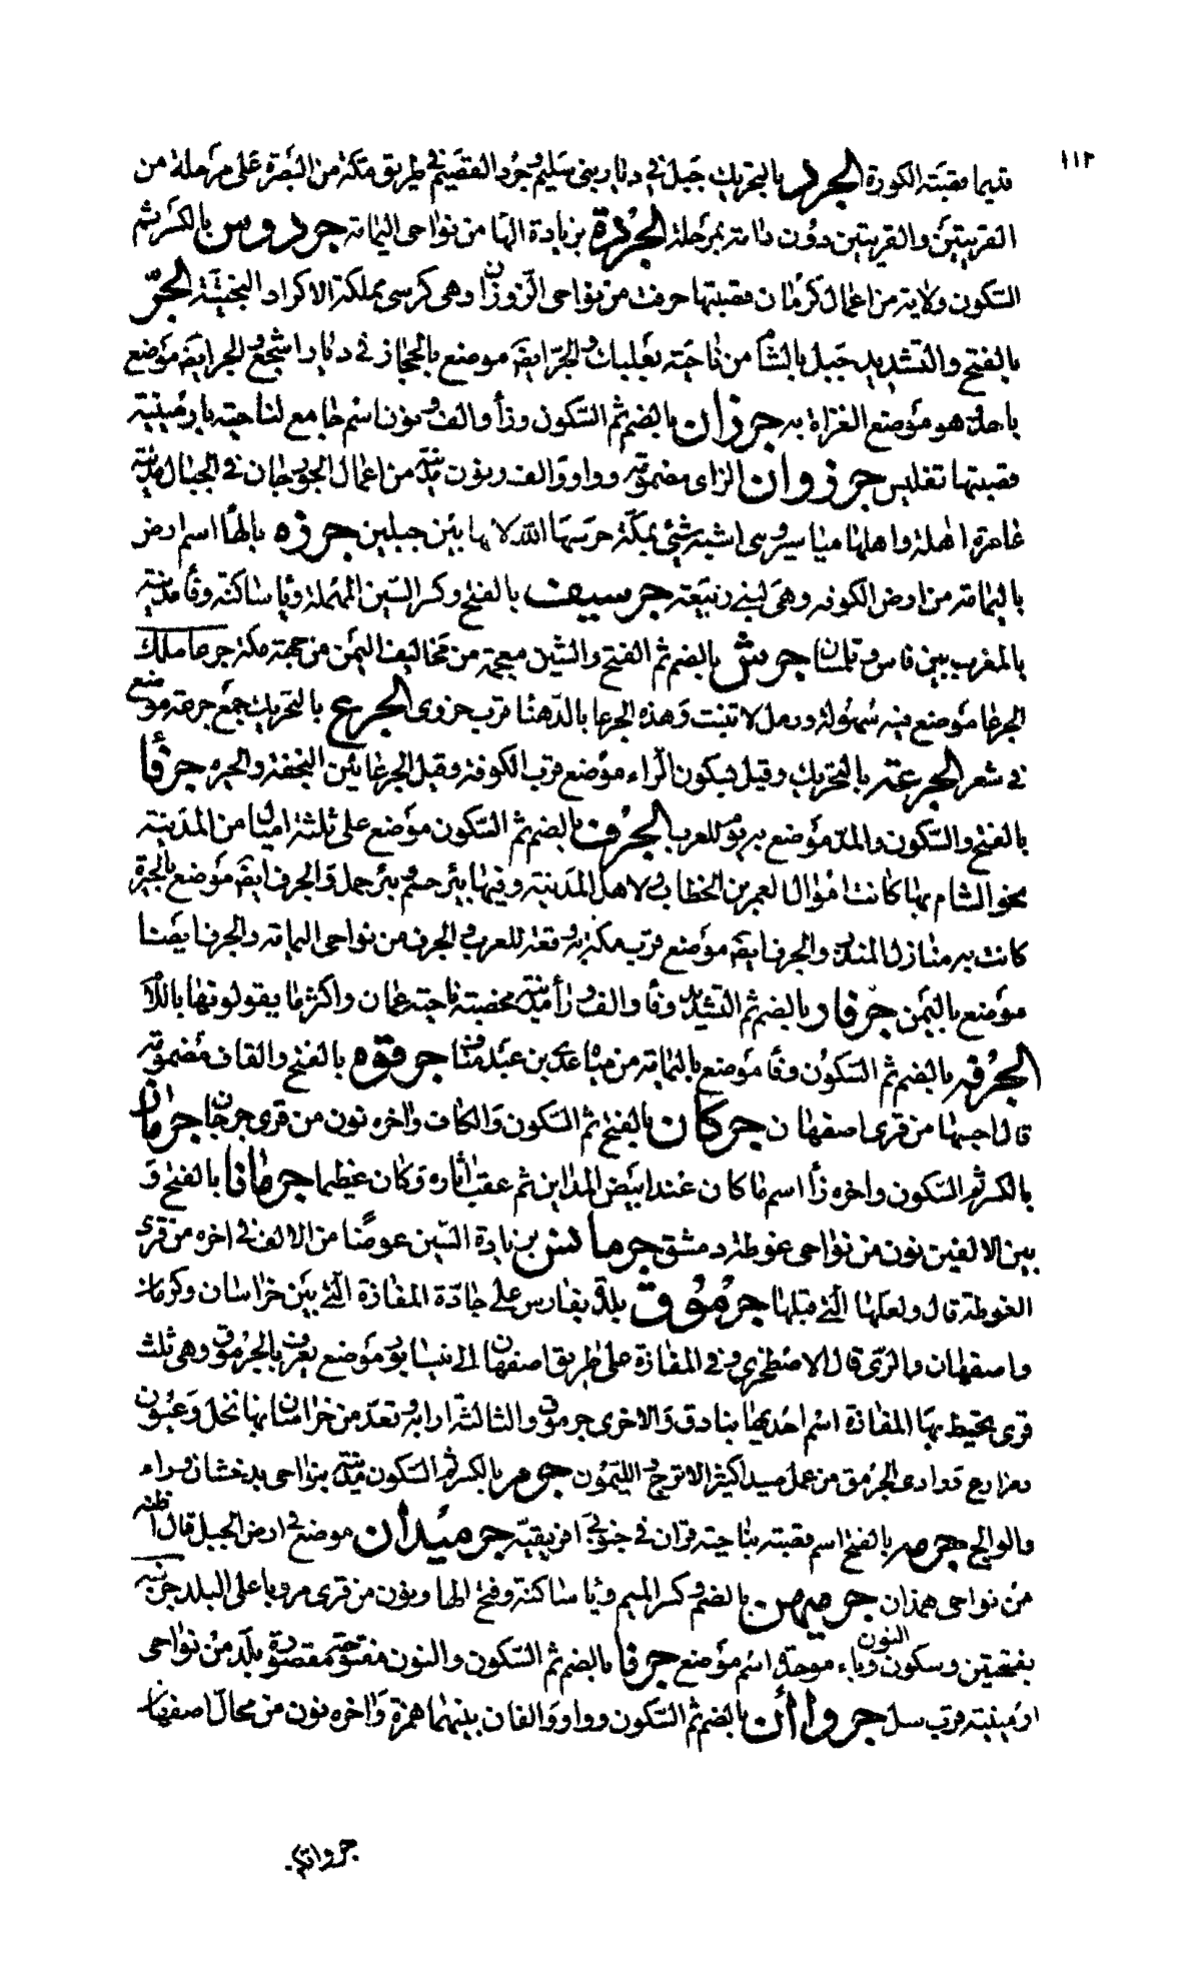 ١١٢
قديما قصبته الكورة الجرد بالتحريك جبل في ديار بني سليم وجرد القصيم في طريق مكة من البصرة على مرحلة من
القريتين والقريتين دون رامة بمرحلة الجردة بزيادة الها من نواحي اليمامة جردوس بالكسر ثم
السكون ولاية من اعمال كرمان قصبتها جرفت من نواحي الزوزان وهى كرسى مملكة الاكراد البختية الجر
بالفتح والتشديد جبل بالشام من ناحية بعلبك والجر ايضه موضع بالحجاز في ديار اشجع والجر ايضه موضع
باحد هو موضع الغزاة به جرزان بالضم ثم السكون وزأ والف ونون اسم جامع لناحية بارمينية
قصبتها تفليس جرزوان الزاى مضمومة وواو والف ونون مدينة من اعمال الجوزجان في الجبال مدينة
عامرة اهلة واهلها مياسير وهى اشبه شئ بمكة حرسها الله لانها بين جبلين جرزه بالها اسم ارض
باليمامة من ارض الكوفه وهى لبني ربيعة جرسيف بالفتح وكسر السين المهملة ويا ساكنة وفا مدينة
بالمغرب بين فاس وتلمسان جرش بالضم ثم الفتح والشين معجمة من مخاليف اليمن من جهة مكة جرعا ملك
الجرعا موضع فيه سهولة ورمل لا تنبت وهذه الجرعا بالدهنا قرب حزوى الجرع بالتحريك جمع جرعه موضع
في شعر الجرعة بالتحريك وقيل بسكون الراء موضع قرب الكوفة وقيل الجرعا بين النجفة والحيره جرفأ
بالفتح والسكون والمد موضع به يوم للعرب الجرف بالضم ثم السكون موضع على ثلثة اميال من المدينة
نحو الشام بها كانت اموال لعمر بن الخطاب ولاهل المدينة وفيها بئر جشم وبئر جمل والجرف ايضه موضع بالحيرة
كانت به منازل المنذر والجرف ايضه موضع قرب مكة به وقعة للعرب والجرف من نواحي اليمامة والجرف ايضا
موضع باليمن جرفار بالضم ثم التشديد وفا والف ورأ مدينة مخصبة ناحية عمان واكثر ما يقولونها باللام
الجرفه بالضم ثم السكون وفا موضع باليمامة من مياه عدى بن عبد مناف جرقوه بالفتح والقاف مضمومة
قال احسبها من قرى اصفهان جركان بالفتح ثم السكون والكاف واخره نون من قرى جرجان جرماز
بالكسر ثم السكون واخره زأ اسم ما كان عند ابيض المداين ثم عفت اثاره وكان عظيما جرمانا بالفتح و
بين الالفين نون من نواحي غوطة دمشق جرمانس بزيادة السين عوضا من الالف في اخره من قرى
الغوطة قال ولعلها التي قبلها جرموق بلدة بفارس على جادة المفازة التي بين خراسان وكرمان
واصفهان والرى قال الاصطخري وفي المفازة على طريق اصفهان الى نيسابور موضع يعرف بالجرموق وهى ثلث
قرى يحيط بها المفازة اسم احديها بنادق والاخرى جرموق والثالثة ارابه وتعد من خراسان بها نخل وعيون
ومزارع ووادى الجرمق من عمل صيدا كثير الاترج والليمون جرم بالكسر ثم السكون مدينة بنواحي بدخشان وراء
والوالج جرمه بالفتح اسم قصبة بناحية فزان في جنوبي افريقيه جرميدان موضع في ارض الجبل قال اظنه
من نواحي همذان جرميهن بالضم وكسر الميم ويا ساكنة وفتح الها ونون من قرى مرو باعلى البلد جرنبه
بفتحتين وسكون النون وباء موحدة اسم موضع جرنا بالضم ثم السكون والنون مفتوحة مقصورة بلد من نواحي
ارمينية قرب دبيل جرواأن بالضم ثم السكون وواو والفان بينهما همزة واخره نون من محال اصفهان
جرواتكن